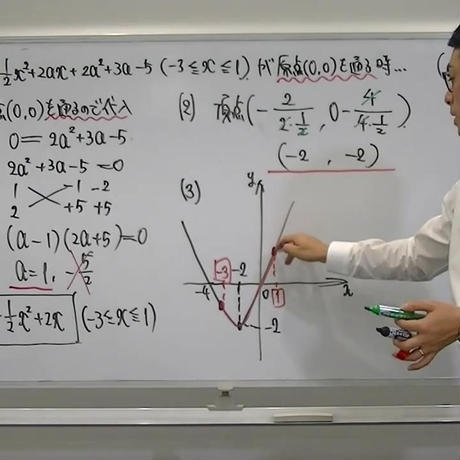 ½x²+2ax+2a²+3a-5 (-3≦x≦1) が原点(0,0)を通る時…
点(0,0)を通るので代入
0=2a²+3a-5
2a²+3a-5=0
1 -1 -2
2 +5 +5
(a-1)(2a+5)=0
a=1, -5/2
½x²+2x (-3≦x≦1)
(2) 頂点(-2/(2·½), 0-4/(4·½))
(-2, -2)
(3)
y
-3 -2
-4 0 1 x
-2